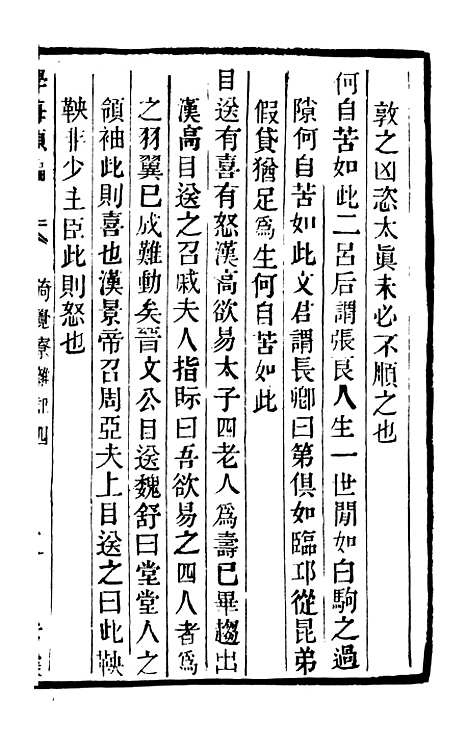 敦之凶恣太眞未必不順之也
何自苦如此二呂后謂張良人生一世閒如白駒之過
隙何自苦如此文君謂長卿曰第俱如臨邛從昆弟
假貸猶足爲生何自苦如此
目送有喜有怒漢高欲易太子四老人爲壽已畢趨出
漢高目送之召戚夫人指眎曰吾欲易之四人者爲
之羽翼已成難動矣晉文公目送魏舒曰堂堂人之
領袖此則喜也漢景帝召周亞夫上目送之曰此鞅
鞅非少主臣此則怒也
猗覺寮雜記四